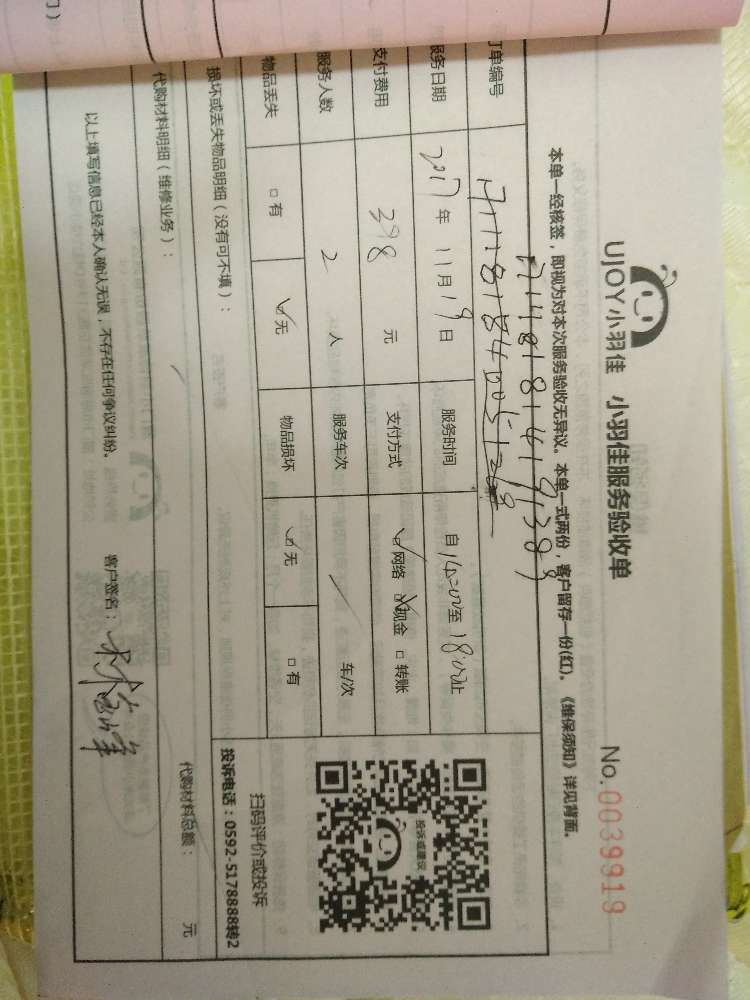 UJOY小羽佳 小羽佳服务验收单 No.0039919
本单一经核签，即视为对本次服务验收无异议。本单一式两份，客户留存一份(红)。《维保须知》详见背面。
订单编号
服务日期 2017年11月19日 服务时间 自14:00至18:00止
支付费用 398元 支付方式 网络 现金 转账
服务人数 2人 服务车次 车/次
物品丢失 有 无 物品损坏 无 有
损坏或丢失物品明细（没有可不填）：
代购材料明细（维修业务）：
代购材料总额： 元
以上填写信息已经本人确认无误，不存在任何争议纠纷。 客户签名：
投诉或建议
扫码评价或投诉
投诉电话：0592-5178888转2